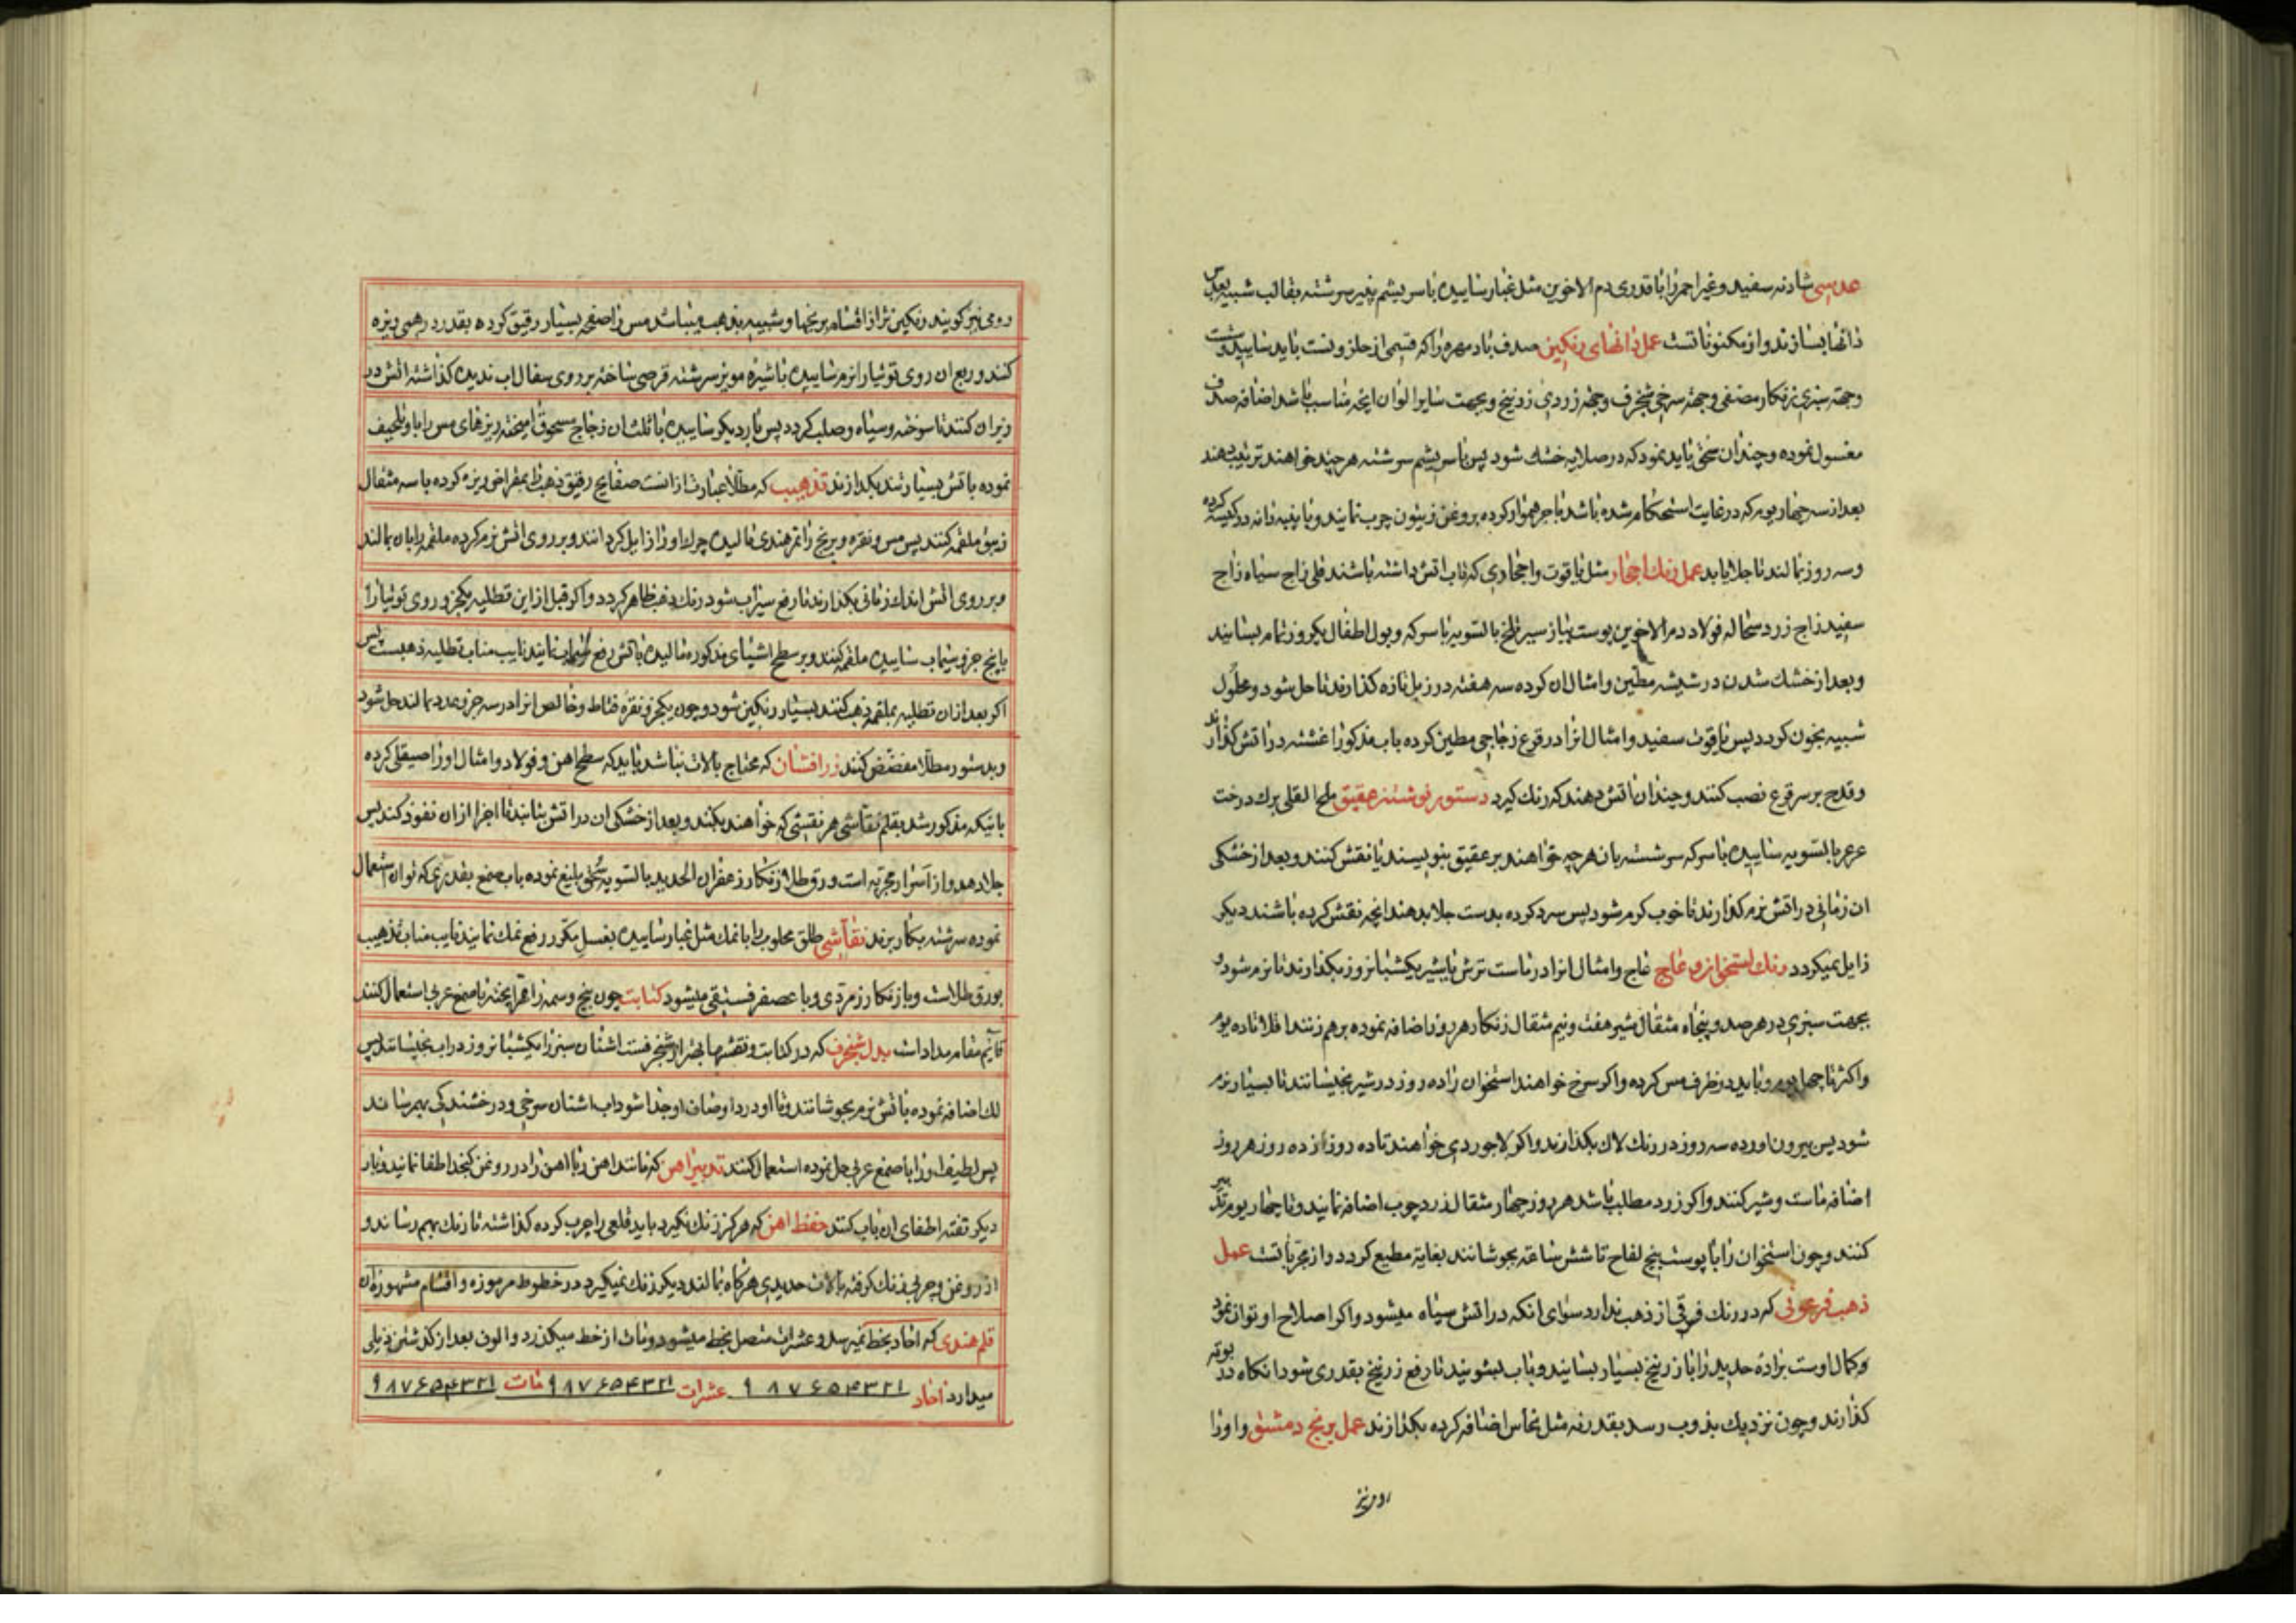 عدسی شادنه سفید و غیر احمر را با قدری دم الاخوین مثل غبار ساییده با سریشم پنیر سرشته بقالب شبیه بعدس
دانها بسازند و از مکنوناتست عمل دانهای رنکین صدف باد مهره را که قسمی از حلزونست باید سایید و شست
وجهة سبزی زنکار مصفی و جهة سرخی شنجرف و جهة زردی زرنیخ و بجهت سایر الوان انچه مناسب باشد اضافه صدف
مغسول نموده و چندان سحق باید نمود که در صلایه خشک شود پس با سریشم سرشته هر چند خواهند ترتیب دهند
بعد از سه چهار یوم که در غایت استحکام شده باشد با چرخ هموار کرده بروغن زیتون چرب نمایند و با پنبه دانه در کیسه کرده
و سه روز بمالند تا جلا یابد عمل رنک احجار مثل یاقوت و احجاری که تاب اتش داشته باشند قلی زاج سیاه زاج
سفید زاج زرد سحاله فولاد دم الاخوین پوست پیاز سیر تلخ بالسویه با سرکه و بول اطفال یکروز تمام بسایند
و بعد از خشک شدن در شیشه مطین و امثال ان کرده سه هفته در زبل تازه کذارند تا حل شود و محلول
شبیه بخون کردد پس یاقوت سفید و امثال انرا در قرع زجاجی مطین کرده باب مذکور اغشته در اتش کذارند
و قدح بر سر قرع نصب کنند و چندان اتش دهند که رنک کیرد دستور نوشتن عقیق ملح القلی برک درخت
عرعر بالسویه ساییده با سرکه سرشته بان هر چه خواهند بر عقیق بنویسند یا نقش کنند و بعد از خشکی
ان زمانی در اتش نرم کذارند تا خوب کرم شود پس سرد کرده بدست جلا بدهند انچه نقش کرده باشند دیکر
زایل نمیکردد رنک استخوان و عاج عاج و امثال انرا در ماست ترش یا شیر یکشبانروز بکذارند تا نرم شود و
بجهت سبزی در هر صد و پنجاه مثقال شیر هفت و نیم مثقال زنکار هر روز اضافه نموده بر هم زنند اقلا تا ده یوم
و اکثر تا چهل یوم و باید در ظرف مس کرده و اکر سرخ خواهند استخوان را ده روز در شیر بخیسانند تا بسیار نرم
شود پس بیرون اورده سه روز در رنک لاک بکذارند و اکر لاجوردی خواهند تا ده روز از ده روز هر روز
اضافه ماست و شیر کنند و اکر زرد مطلب باشد هر روز چهار مثقال زرد چوب اضافه نمایند و تا چهار یوم تدبیر
کنند و چون استخوان را با پوست بیخ لفاح تا شش ساعة بجوشانند بغایة مطیع کردد و از مجرباتست عمل
ذهب فرعونی که در رنک فرقی از ذهب ندارد سوای انکه در اتش سیاه میشود و اکر اصلاح او توان نمود
و کمال اوست براده حدید را با زرنیخ بسیار بسایند و باب بشویند تا رفع زرنیخ بقدری شود انکاه در بوته
کذارند و چون نزدیک بذوب رسد بقدر نه مثل نحاس اضافه کرده بکذازند عمل برنج دمشقی و او را
رومی نیز
رومی نیز کویند رنکین تر از اقسام برنجها و شبیه بذهب میباشد مس را صفحه بسیار رقیق کرده بقدر درهمی ریزه
کنند و ربع ان روی توتیا را نرم ساییده با شیره مویز سرشته قرصی ساخته بر روی سفال اب ندیده کذاشته اتش در
زیر ان کنند تا سوخته و سیاه و صلب کردد پس بار دیکر ساییده با ثلث ان زجاج مسحوق امیخته ریزهای مس را با او تلحیف
نموده باتش بسیار تند بکدازند تذهیب که مطلا عبارت از انست صفایح رقیق ذهب را بمقراض ریزه کرده با سه مثقال
زیبق ملقمه کنند پس مس و نقره و برنج را تمر هندی مالیده چرک او را زایل کردانند و بر روی اتش نرم کرده ملقمه را بان بمالند
و بر روی اتش اندک زمانی بکذارند تا رفع سیماب شود رنک ذهب ظاهر کردد و اکر قبل از این تطلیه یکجزو روی توتیا را
با پنج جزو سیماب ساییده ملقمه کنند و بر سطح اشیای مذکوره مالیده باتش رفع سیماب نمایند نایب مناب تطلیه ذهبست پس
اکر بعد از ان تطلیه بملقمه ذهب کنند بسیار رنکین شود و چون یکجزو نقره خالص انرا در سه جزو بمالند حل شود
و بدستور مطلا مفضض کنند زرافشان که محتاج بالات نباشد باید که سطح اهن و فولاد و امثال او را صیقلی کرده
بانیکه مذکور شد بقلم نقاشی هر نقشی که خواهند بکنند و بعد از خشکی ان در اتش بتابند تا اجزا از ان نفوذ کند پس
جلا دهد و از اسرار مجربه است ورق طلا زنکار زعفران الحدید بالسویه سحق بلیغ نموده باب صمغ بقدری که توان استعمال
نموده سرشته بکار برند نقاشی طلق محلوب را با نمک مثل غبار ساییده بغسل مکرر رفع نمک نمایند نایب مناب تذهیب
بورق طلاست و با زنکار زمردی و با عصفر فستقی میشود کتابت چون بیخ وسمه را مهرا پخته با صمغ عربی استعمال کنند
قایم مقام مداد است بدل شنجرف که در کتابت و نقشها بهتر از شنجرفست اشنان سبز را یکشبانروز در اب بخیسانند پس
لک اضافه نموده باتش نرم بجوشانند و تا او درد او صاف او جدا شود اب اشنان سرخی و درخشندکی بهم رساند
پس لطیف او را با صمغ عربی حل نموده استعمال کنند تدبیر اهن که مانند اهن ربا اهن را در روغن کنجد اطفا نمایند و بار
دیکر تفته اطفای ان باب کنند حفظ اهن که هرکز زنک نکیرد باید قلعی را چرب کرده کذاشته تا زنک بهم رساند و
از روغن و چربی زنک کرفته بالات حدیدی هرکاه بمالند دیکر زنک نمیکیرد در خطوط مرموزه و اقسام مشهوره ان
قلم هندی که احاد بخط نمیرسد و عشرات متصل بخط میشود و مات از خط میکذرد و الوف بعد از کذشتن ذیلی
میدارد احاد ۱ ۲ ۳ ۴ ۵ ۶ ۷ ۸ ۹ عشرات ۱ ۲ ۳ ۴ ۵ ۶ ۷ ۸ ۹ مات ۱ ۲ ۳ ۴ ۵ ۶ ۷ ۸ ۹